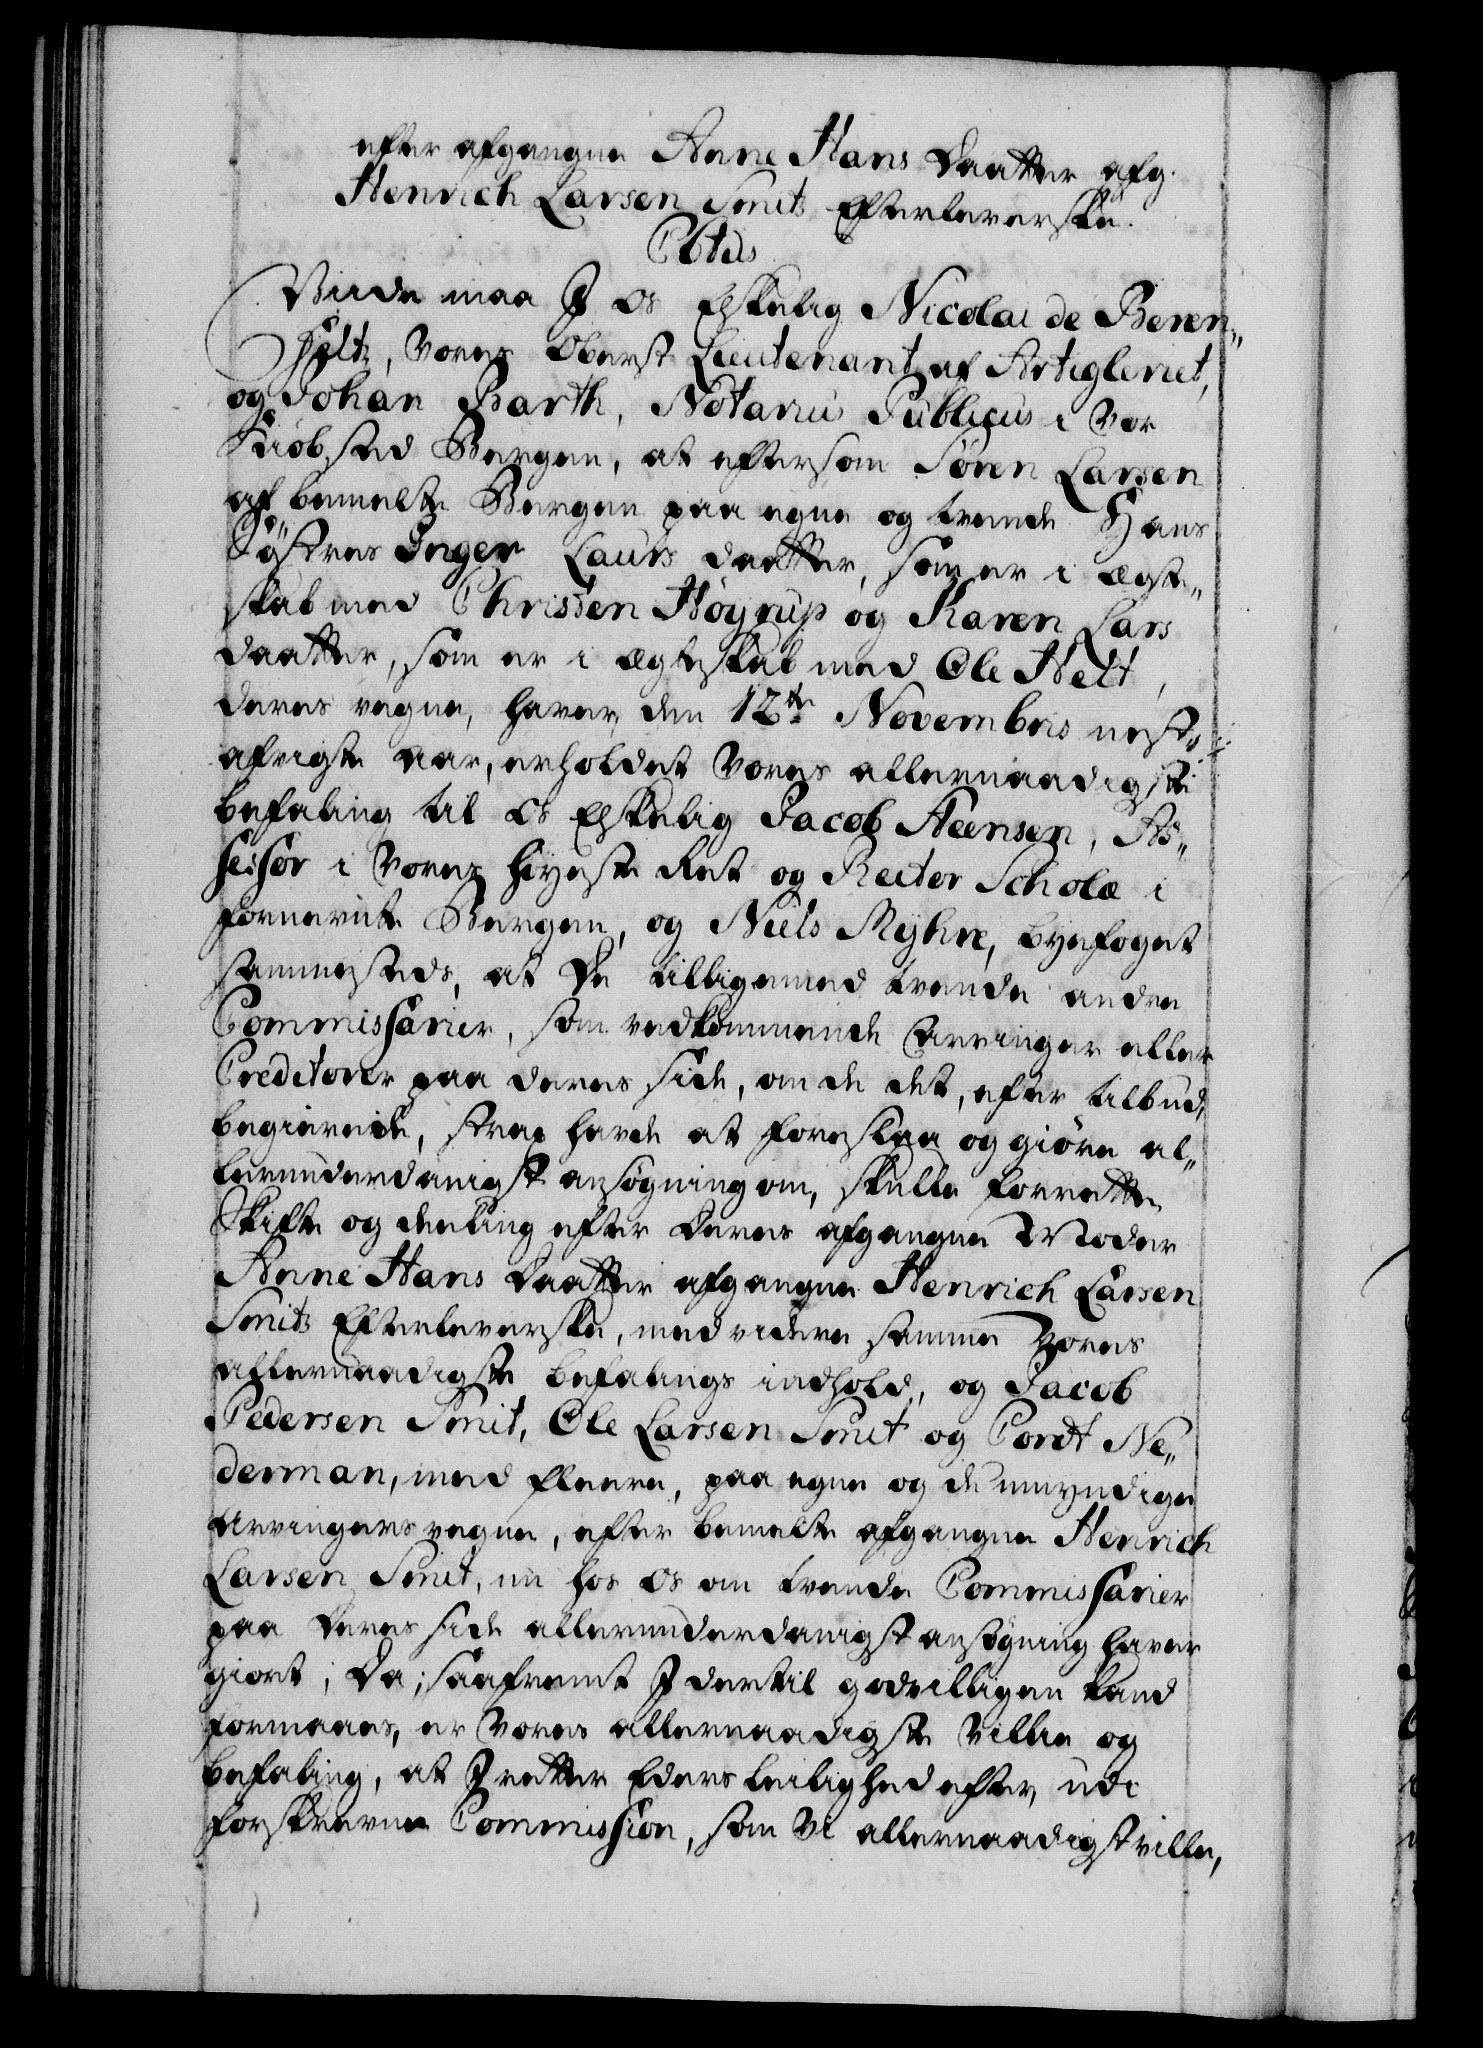 efter afgangne Anne Hans Daatter afg.
Henrich Larsen Smits Efterleverske.
C6tus
Viide maa I Os Elskelig Nicolai de Beren„
holt, Vores Oberst Lieutenant af Artigleriet,
og Johan Barth, Notarius Publicus i Vor
Kiøbsted Bergen, at eftersom Søren Larsen
af bemelte Bergen paa egne og tvende Hans
Søstres Inger Laurs daatter, som er i ægte„
skab med Christen Høyrup og Karen Lars
daatter, som er i ægteskab med Ole Helt,
deres vegne, haver den 12te Novembris nest„
afvigte aar, erholdet Vores allernaadigste
befaling til Os Elskelig Jacob Steensen, As„
sessor i Vores høyeste Ret og Rector Scholæ i
fornevnte Bergen, og Niels Myhre, byefoget
sammesteds, at De tilligemed tvende andre
Commissarier, som vedkommende Arvinger eller
Creditorer paa deres side, om de det, efter tilbud,
begierede, strax havde at foreslaa og giøre al„
lerunderdanigst ansøgning om, skulle forrette
Skifte og deeling efter deres afgangne Moder
Anne Hans Daatter afgangne Henrich Larsen
Smits Efterleverske, med videre samme Vores
allernaadigste befalings indhold, og Jacob
Pedersen Smit, Ole Larsen Smit og Cordt Ne„
derman, med fleere, paa egne og de umyndige
Arvingers vegne, efter bemelte afgangne Henrich
Larsen Smit, nu hos Os om tvende Commissarier
paa deres side allerunderdanigst ansøgning haver
giort; Da, saafremt I dertil godvilligen kand
formaaes, er Vores allernaadigste Villie og
befaling, at I retter Eders leilighed efter, udi
forskrevne Commission, som Vi allernaadigst ville,